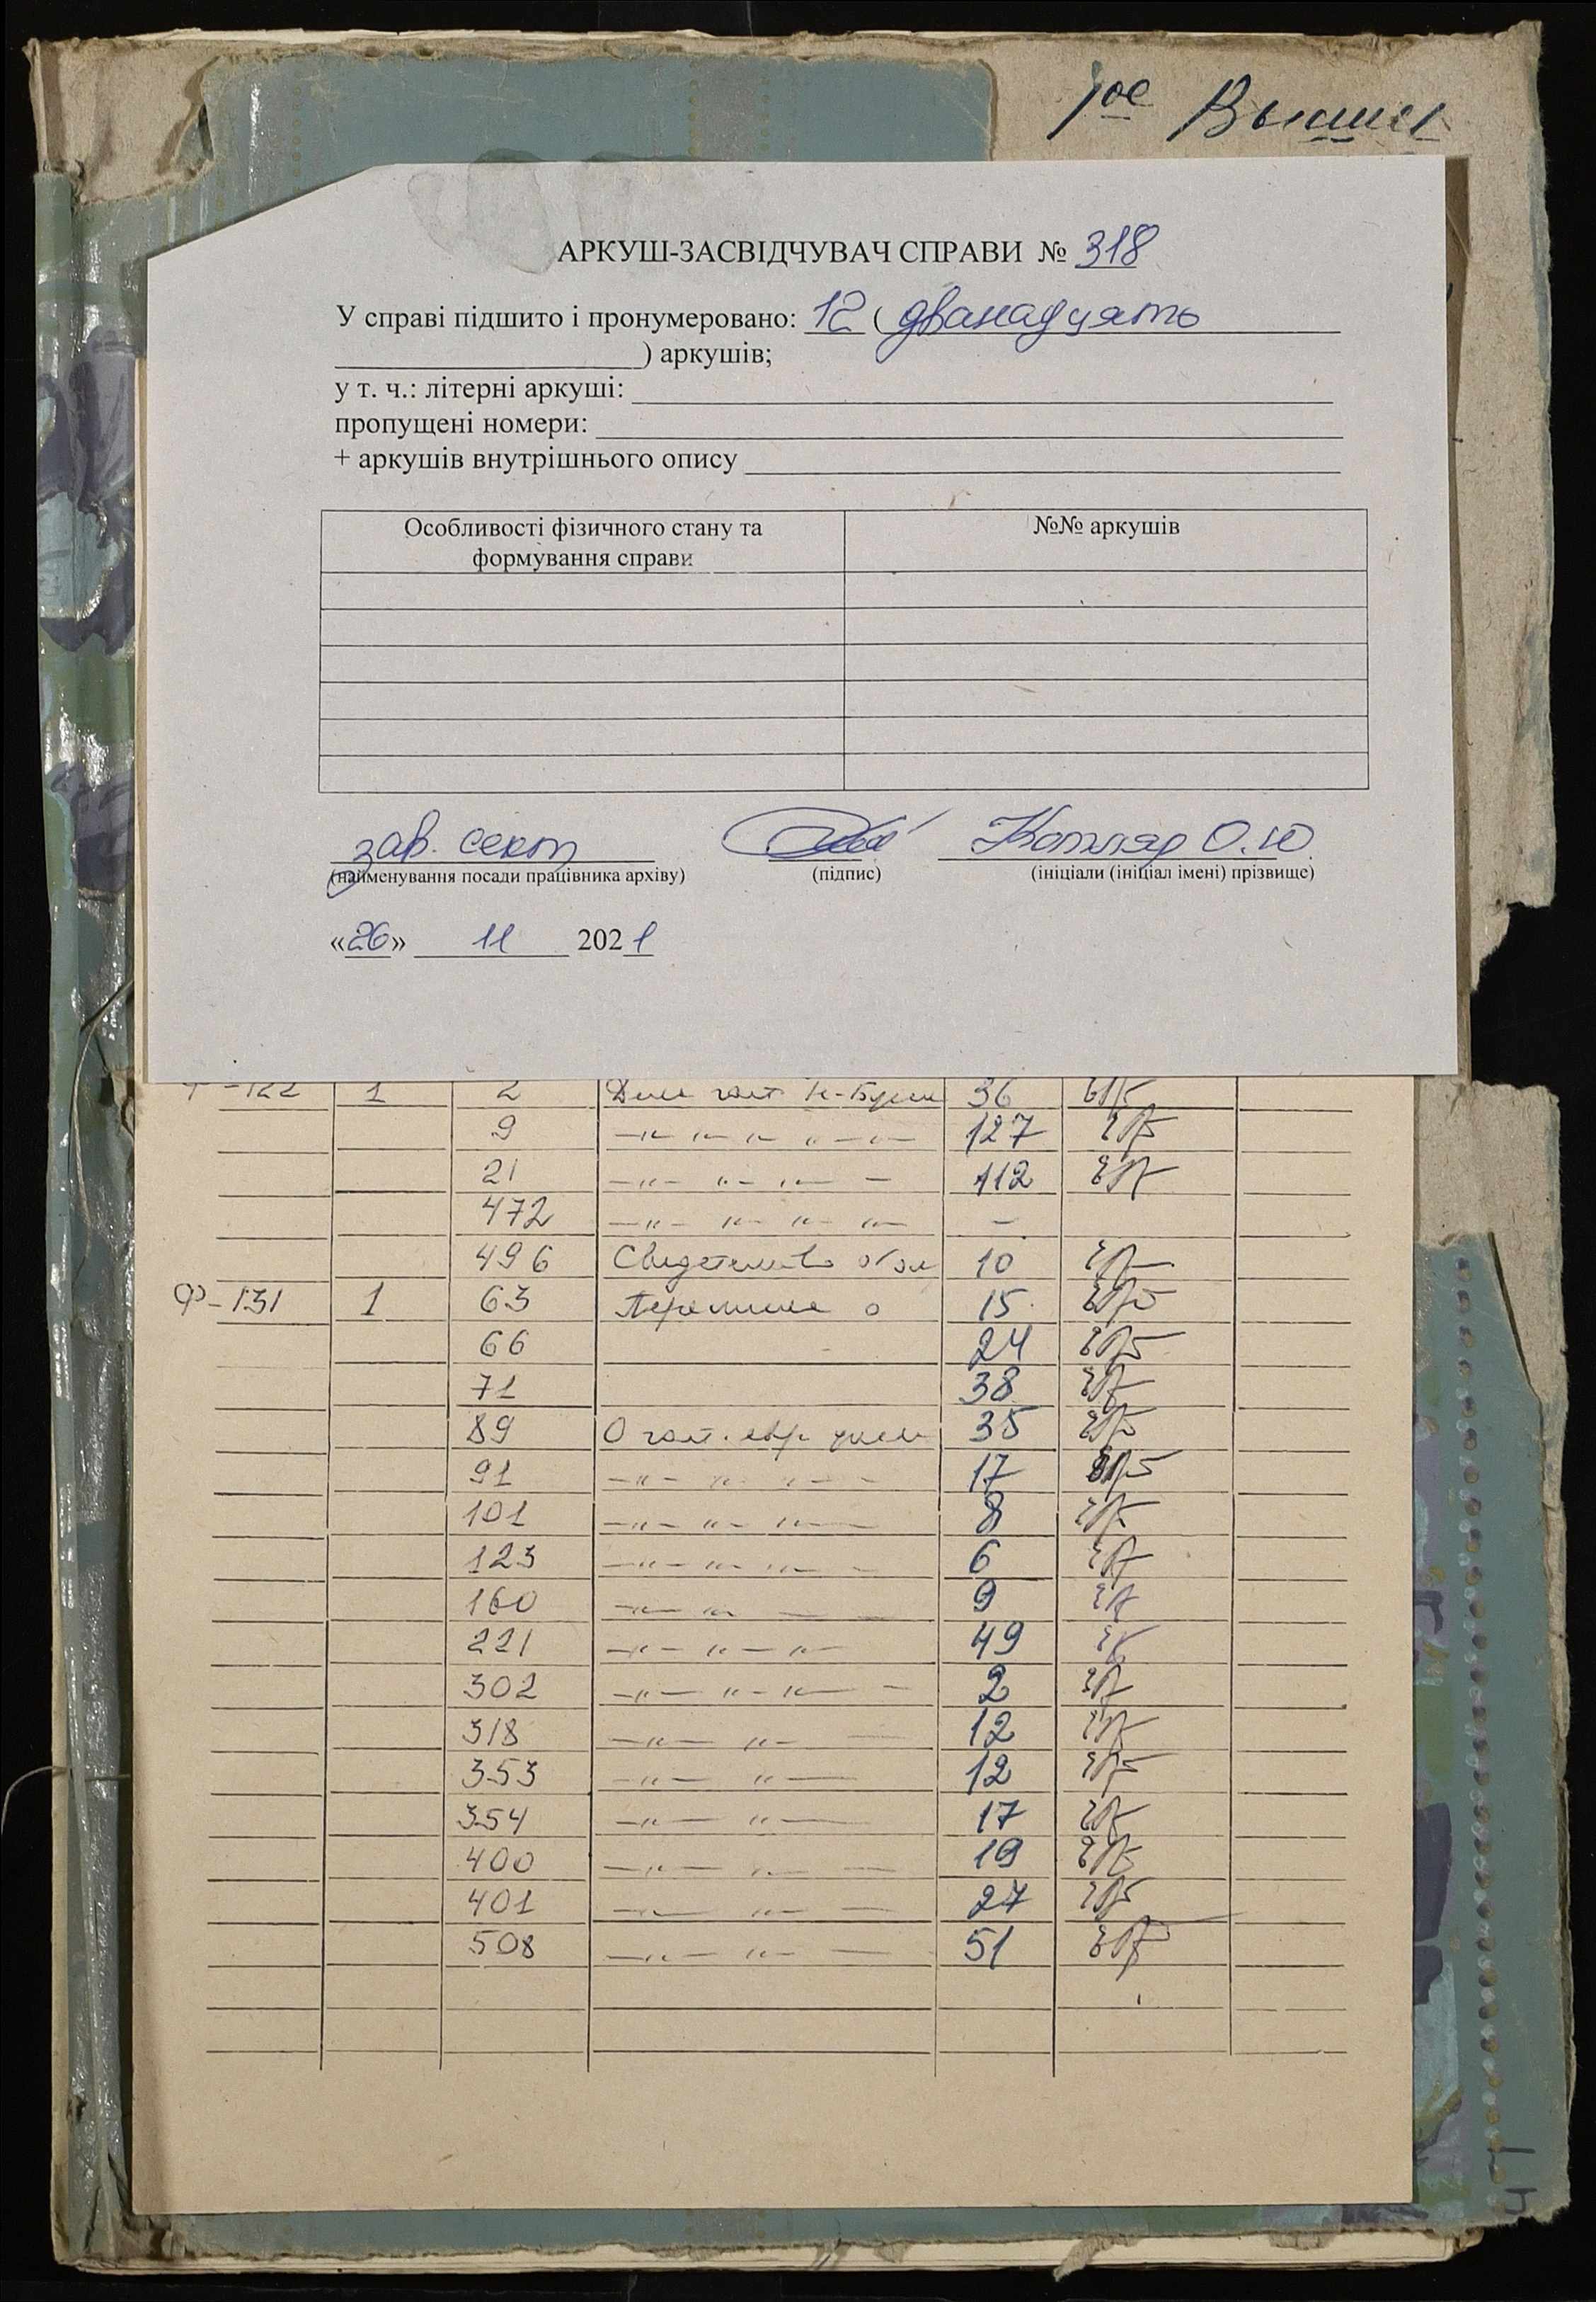 1ое
АРКУШ-ЗАСВІДЧУВАЧ СПРАВИ № 318
У справі підшито і пронумеровано: 12 ( дванадцять
) аркушів;
у т. ч.: літерні аркуші:
пропущені номери:
+ аркушів внутрішнього опису
Особливості фізичного стану та формування справи №№ аркушів
зав. сект Котляр О.Ю
(найменування посади працівника архіву) (підпис) (ініціали (ініціал імені) прізвище)
«26» 11 2021
Ф-122 1 2 36
9 —"— "— "— " — "— 127
21 —"— "— "— — 112
472 —"— "— "— "— –
496 Свидетельство 10
Ф-131 1 63 о 15
66 24
71 38
89 О 35
91 —"— "— "— — 17
101 —"— "— "— 8
123 —"— "— "— 6
160 —"— "— — — 9
221 —"— "— "— 49
302 —"— "— "— — 2
318 —"— "— — 12
353 —"— "— 12
354 —"— "— 17
400 —"— "— — 19
401 —"— "— — 27
508 —"— "— — 51